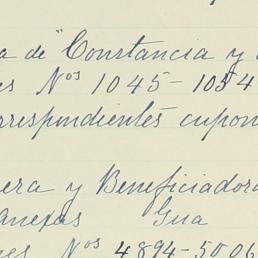 a de "Constancia y
es Nos 1045-1054
rrespondientes cupon
era y Beneficiadora
anexas Gua
es Nos 4894-5006